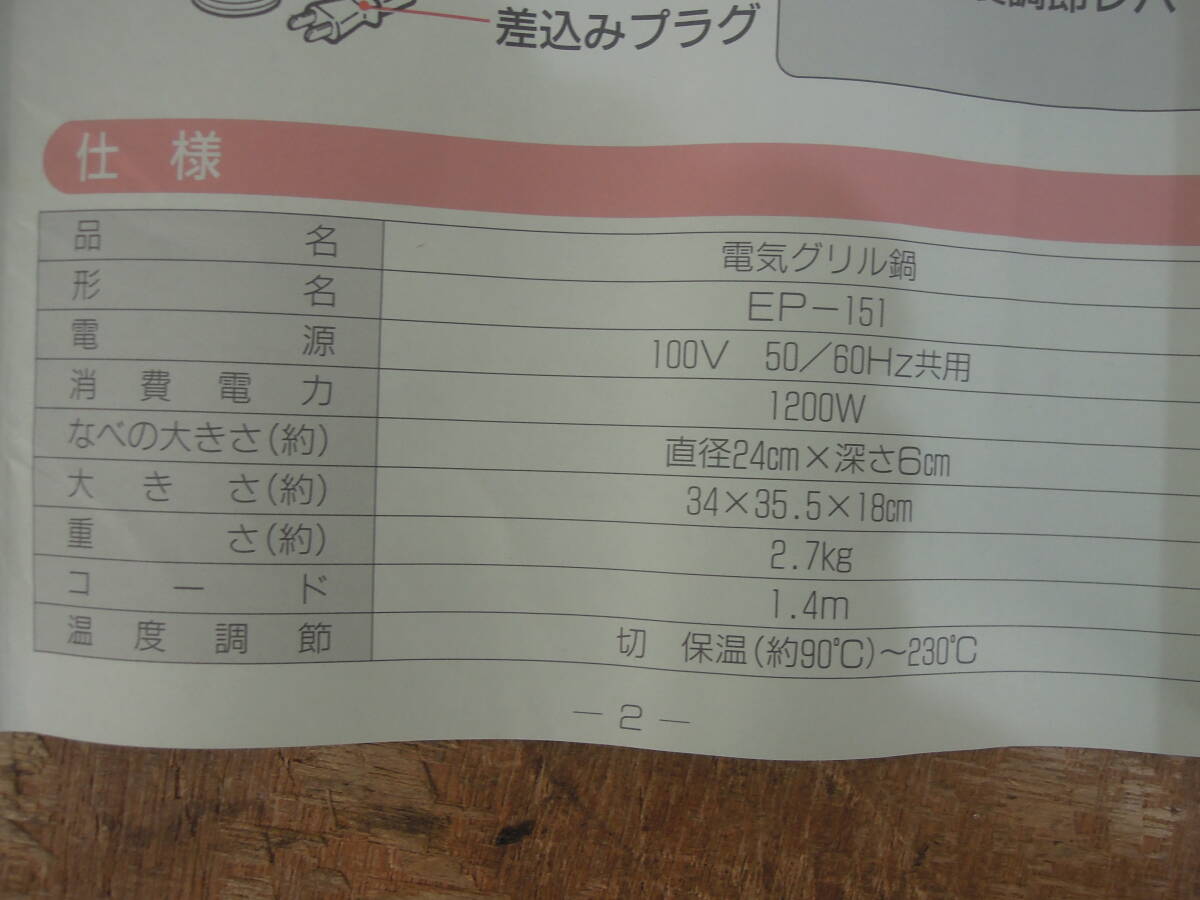 差込みプラグ
仕様
品名 電気グリル鍋
形名 EP－151
電源 100V 50／60Hz共用
消費電力 1200W
なべの大きさ（約） 直径24cm×深さ6cm
大きさ（約） 34×35.5×18cm
重さ（約） 2.7kg
コード 1.4m
温度調節 切 保温（約90℃）〜230℃
－2－